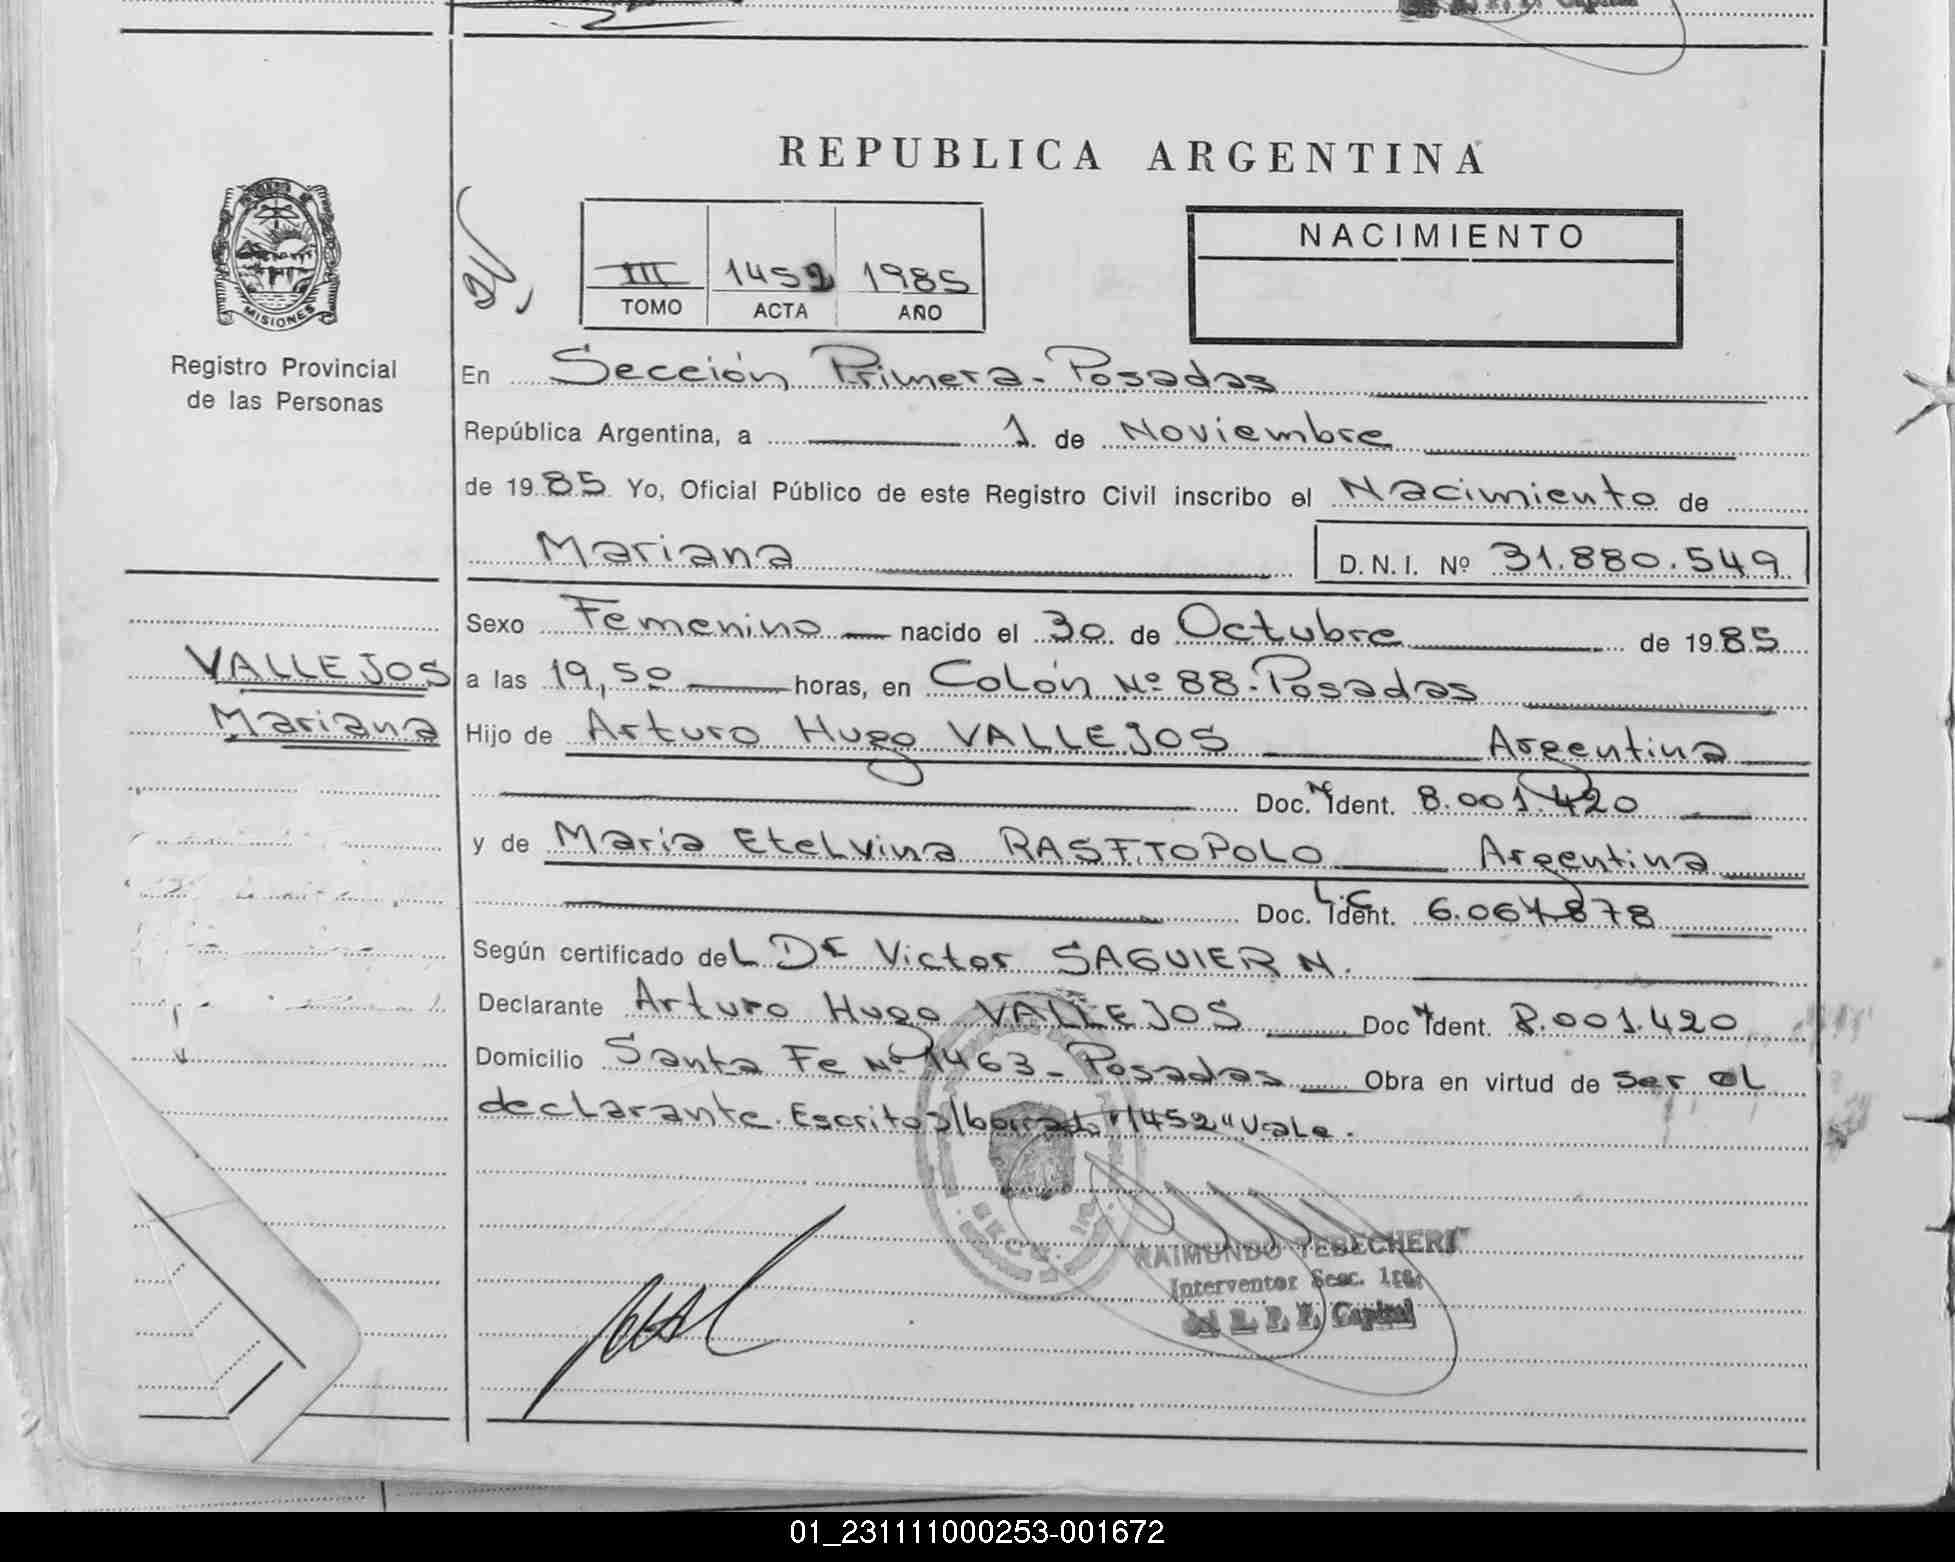 REPUBLICA ARGENTINA
MISIONES
Registro Provincial
de las Personas
III 1452 1985
TOMO ACTA AÑO
NACIMIENTO
En Sección Primera - Posadas
República Argentina, a 1 de Noviembre
de 1985 Yo, Oficial Público de este Registro Civil inscribo el Nacimiento de
Mariana D.N.I. Nº 31.880.549
Sexo Femenino nacido el 30 de Octubre de 1985
VALLEJOS
Mariana
a las 19,50 horas, en Colón Nº 88 - Posadas
Hijo de Arturo Hugo VALLEJOS Argentina
Doc. Ident. 8.001.420
y de María Etelvina RASFTOPOLO Argentina
Doc. L.C. Ident. 6.064.878
Según certificado del Dr Victor SAGUIER N.
Declarante Arturo Hugo VALLEJOS Doc Ident. 8.001.420
Domicilio Santa Fe Nº 1463 - Posadas Obra en virtud de ser el
declarante. Escrito s/borrado "1452" Vale.
RAIMUNDO TEBECHERI
Interventor Secc. 1ra.
del R. P. P. Capital
01_231111000253-001672